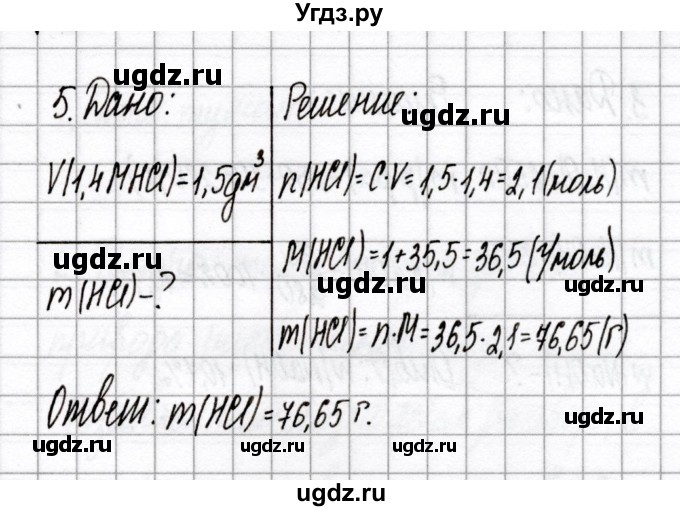 Угдз.ру
ugdz.ru
5. Дано:
Решение:
ugdz.ru
V(1,4M HCl)=1,5дм³
n(HCl)=C·V=1,5·1,4=2,1(моль)
ugdz.ru
ugdz.ru
M(HCl)=1+35,5=36,5(г/моль)
ugdz.ru
ugdz.ru
m(HCl)-?
m(HCl)=n·M=36,5·2,1=76,65(г)
Ответ: m(HCl)=76,65 г.
ugdz.ru
ugdz.ru
ugdz.ru